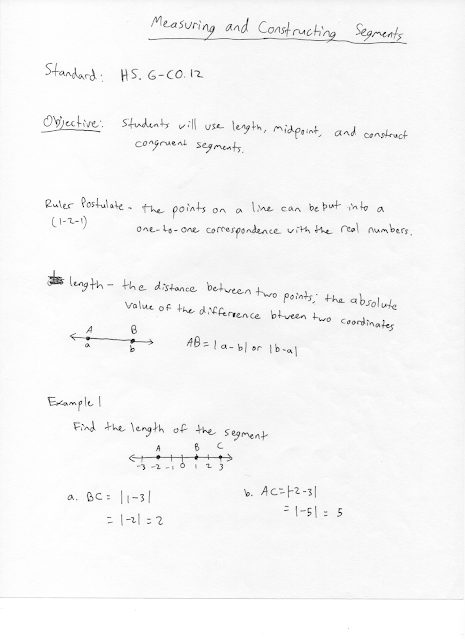 Measuring and Constructing Segments
Standard: HS. G-CO.12
Objective: Students will use length, midpoint, and construct
congruent segments.
Ruler Postulate - the points on a line can be put into a
(1-2-1) one-to-one correspondence with the real numbers.
length - the distance between two points; the absolute
value of the difference btween two coordinates
A B
a b
AB = |a-b| or |b-a|
Example 1
Find the length of the segment
A B C
-3 -2 -1 0 1 2 3
a. BC = |1-3| b. AC = |-2-3|
= |-2| = 2 = |-5| = 5